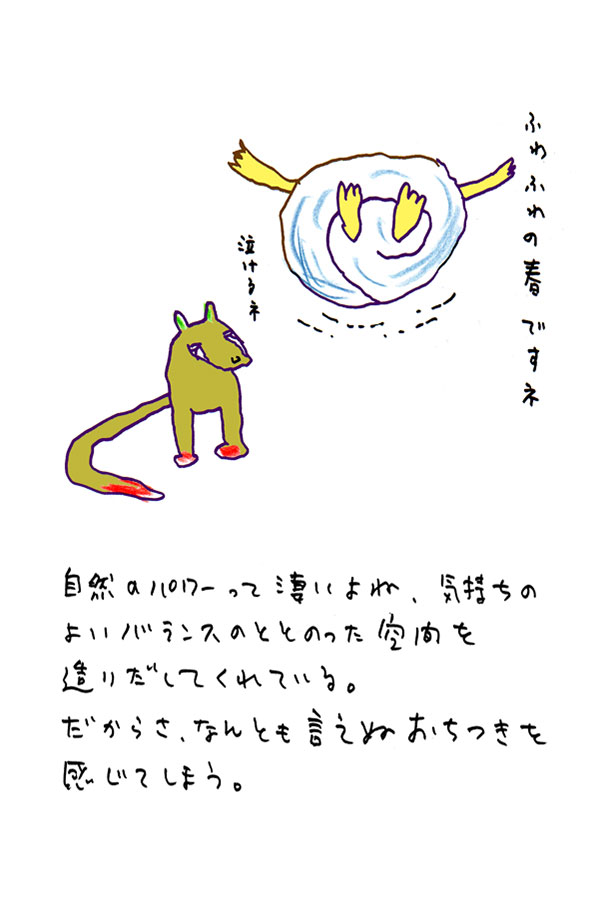 ふわふわの春ですネ
泣けるネ
自然のパワーって凄いよね、気持ちの
よいバランスのととのった空間を
造りだしてくれている。
だからさ、なんとも言えぬおちつきを
感じてしまう。